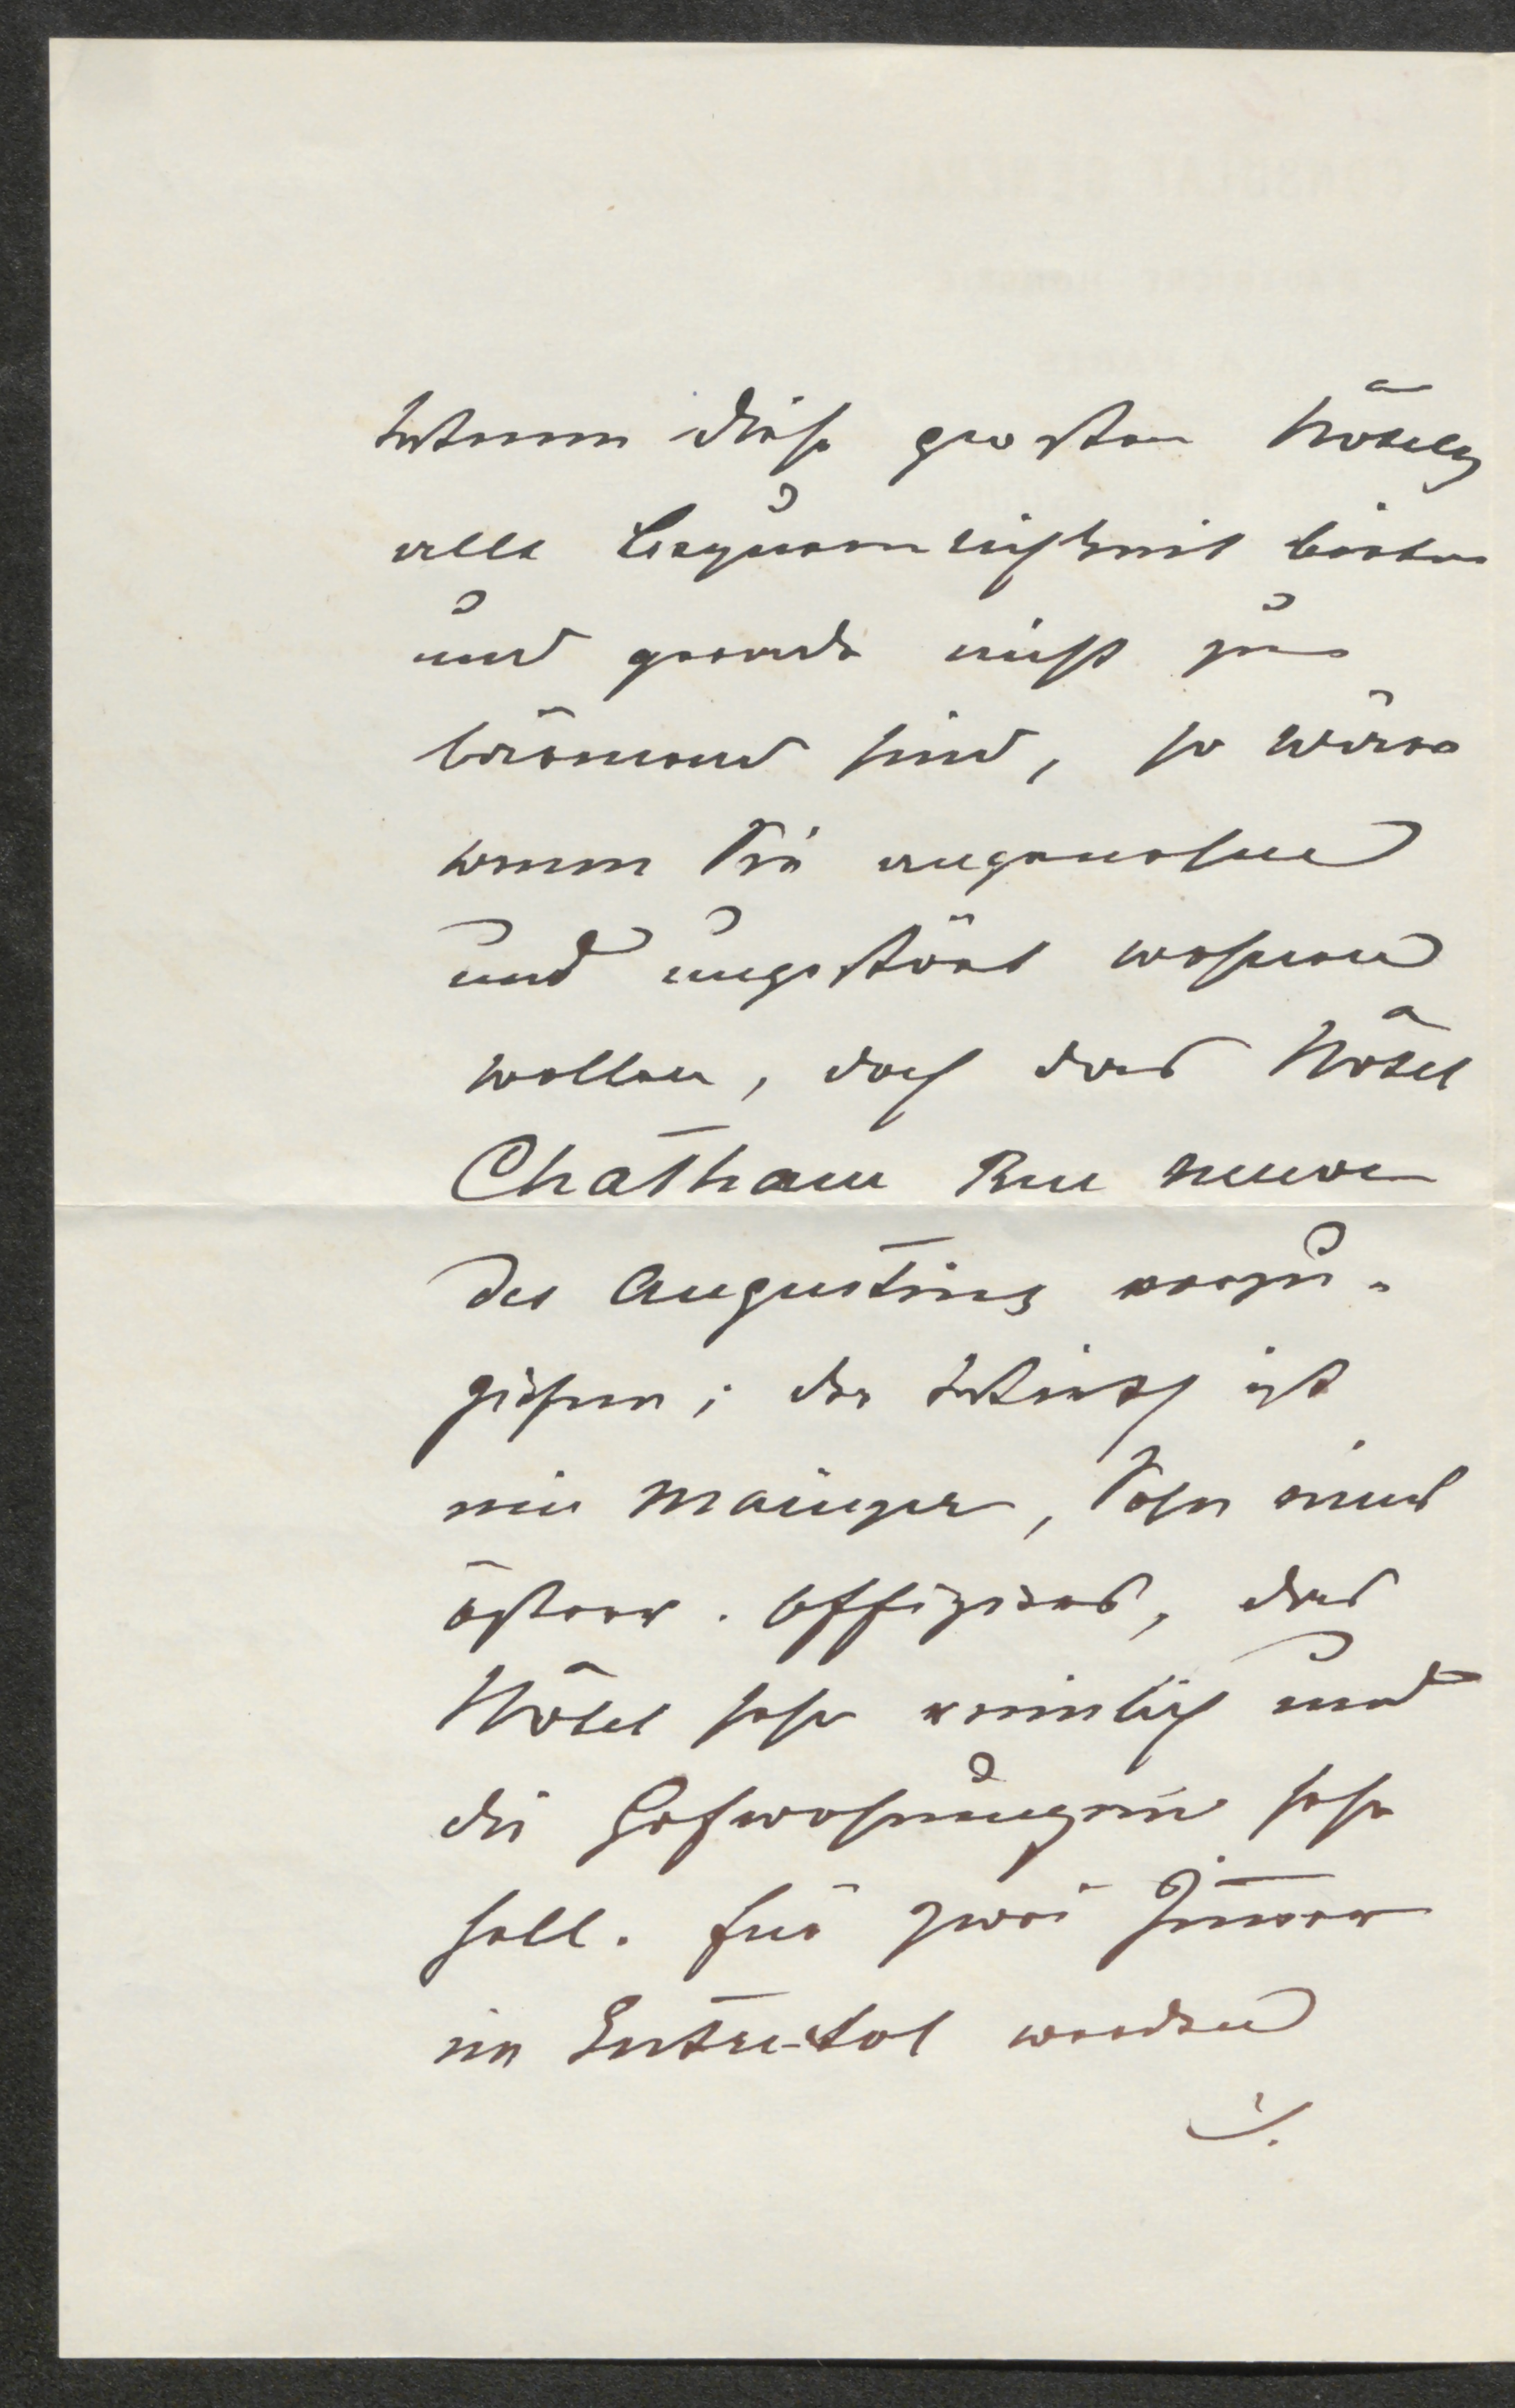 Wenn diese grossen Hôtels
alle Bequemlichkeit bieten
und gerade nicht zu
lärmend sind, so wäre
wenn Sie angenehm
und ungestört wohnen
wollen, doch das Hôtel
Chatham Rue neuve
des Augustins vorzu-
ziehen; der Wirth ist
ein Mainzer, Sohn eines
österr. Offiziers, das
Hôtel sehr reinlich und
die Hofwohnungen sehr
hell. für zwei Zimmer
im Entre-sol werden